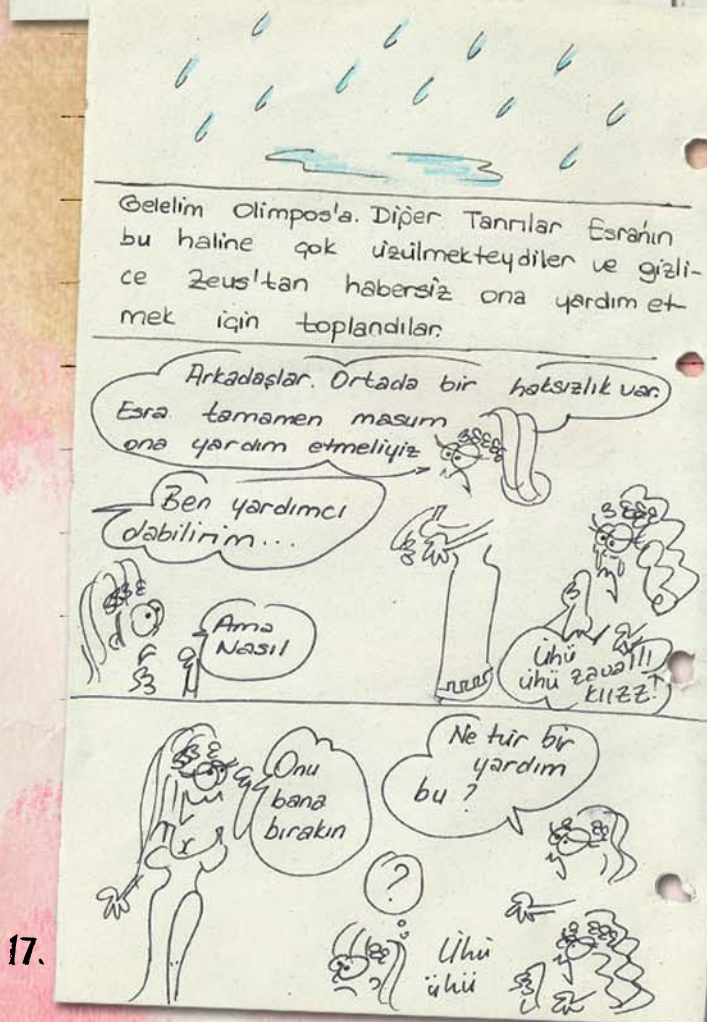 Gelelim Olimpos'a. Diğer Tanrılar Esra'nın
bu haline çok üzülmekteydiler ve gizli-
ce Zeus'tan habersiz ona yardım et-
mek için toplandılar.
Arkadaşlar. Ortada bir haksızlık var.
Esra tamamen masum
ona yardım etmeliyiz
Ben yardımcı
olabilirim...
Ama
Nasıl
Ühü
ühü zavallı
KIIZZ!
Onu
bana
bırakın
Ne tür bir
yardım
bu?
?
Ühü
ühü
17.